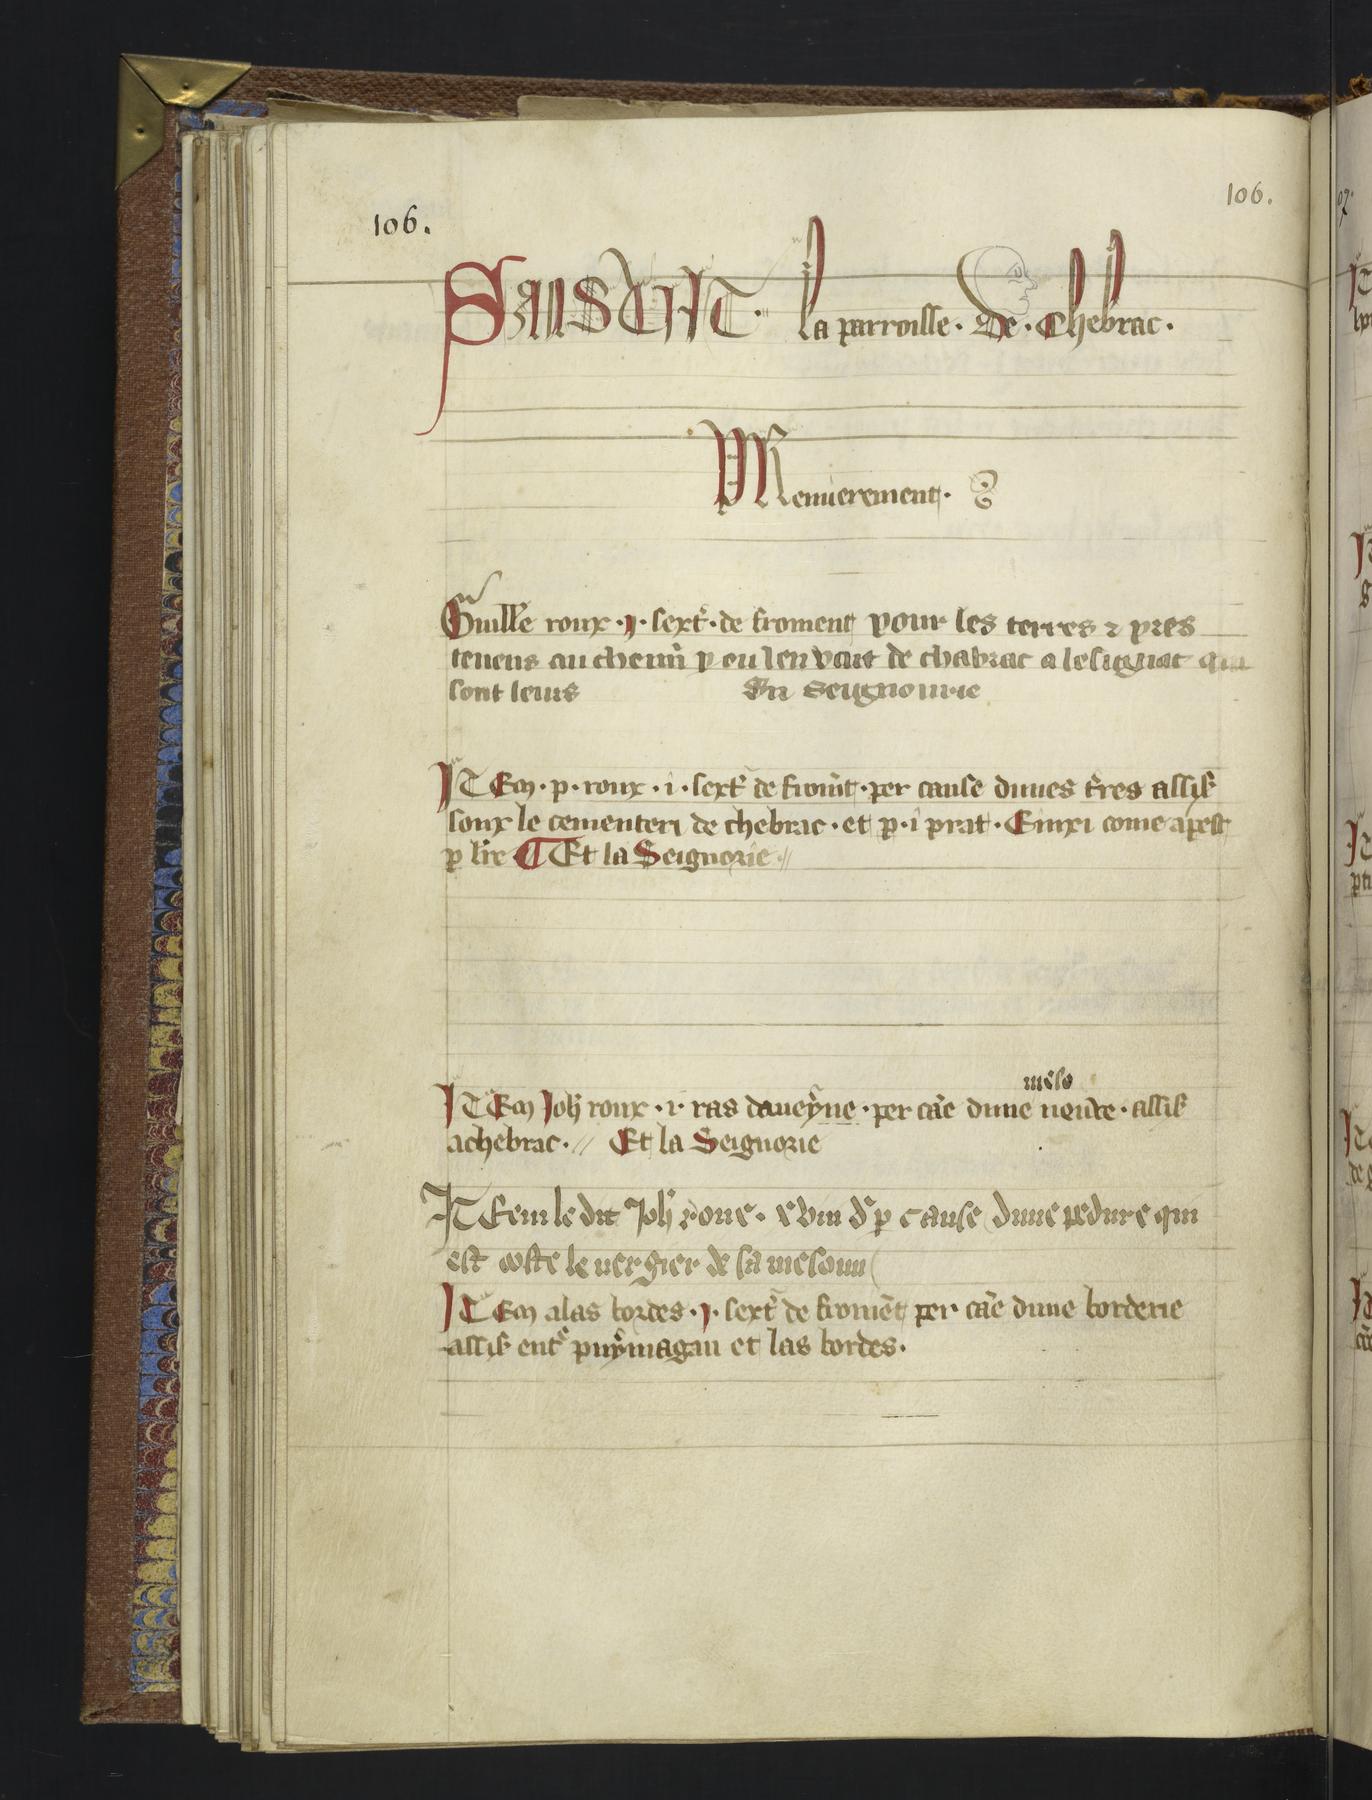 106.
106.
SAnSuit. la parroisse. De. Chebrac.
PRemierement.
Guillē roux .j. sext̃. de froment pour les terres & pres
tenens au chemī p ou len vait de chabrac a lesignac qui
sont leurs En Seignourie
ITEm. p. roux .i. sext̃ de fromt̄. per cause dunes tr̄res assis
soux le cementeri de chebrac. et p. i prat. Einxi come apest
p lrē Et la Seignorie
mēso
ITEm Joh̄ roux .i. ras daueyne. per cāe dune assis
achebrac. // Et la Seignorie
ITEm le dit Joh̄ roux. d p cause dune pedure qui
est coste le uergier de sa mesoun
ITEm alas bordes .j. sext̃ de fromēt per cāe dune borderie
assis ent puymagau et las bordes.